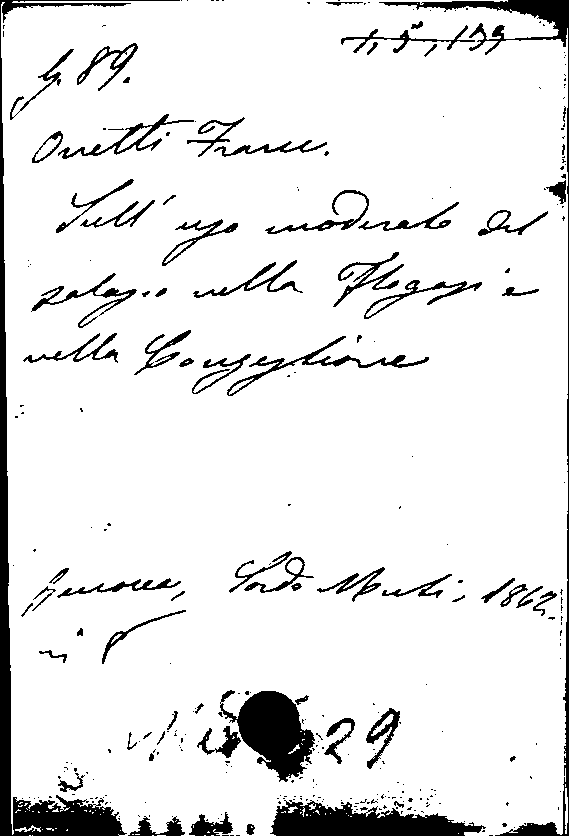 1, 5, 139
G. 89.
Onetti Franc.
Sull' uso moderato del
salasso nella Flogosi e
nella Congestione
Genova, Sordo Muti, 1862.
in 8
29